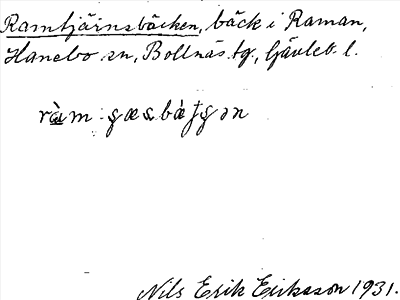 Ramtjärnsbäcken, bäck i Raman,
Hanebo sn, Bollnäs tg., Gävleb. l.
Nils Erik Eriksson 1931.